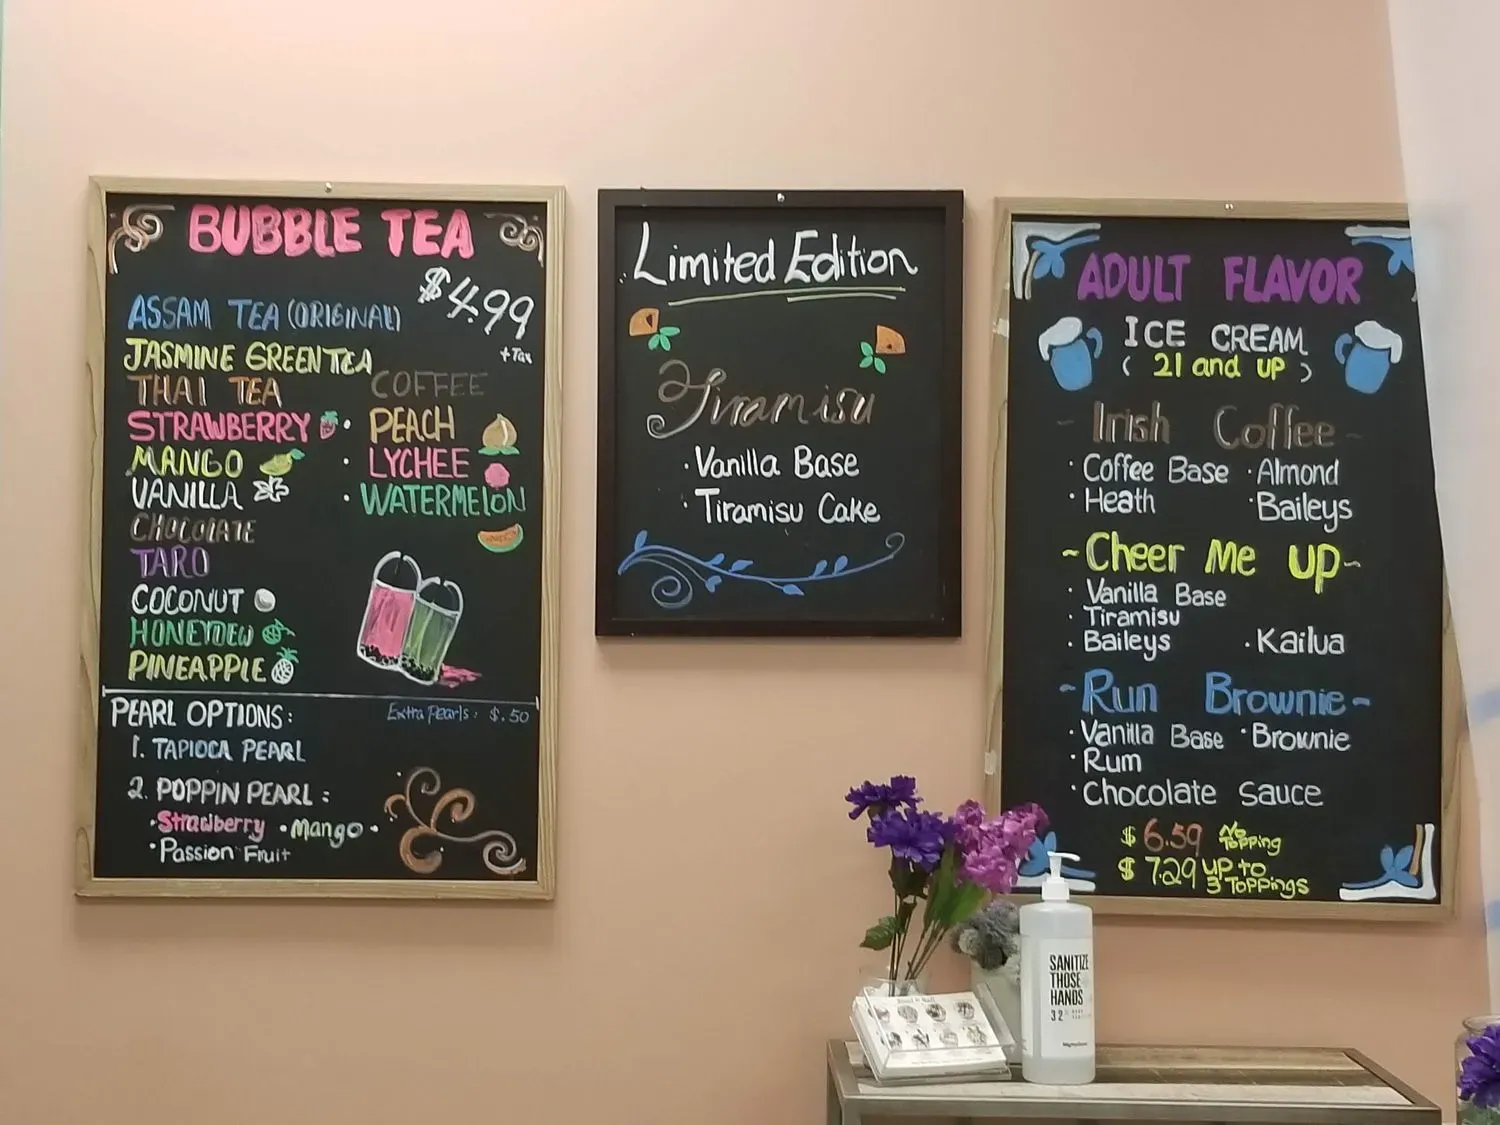 BUBBLE TEA
$4.99
+Tax
ASSAM TEA (ORIGINAL)
JASMINE GREEN TEA
THAI TEA
STRAWBERRY
MANGO
VANILLA
CHOCOLATE
TARO
COCONUT
HONEYDEW
PINEAPPLE
COFFEE
• PEACH
• LYCHEE
• WATERMELON
PEARL OPTIONS:
Extra Pearls: $.50
1. TAPIOCA PEARL
2. POPPIN PEARL:
• Strawberry • Mango •
• Passion Fruit
Limited Edition
Tiramisu
• Vanilla Base
• Tiramisu Cake
ADULT FLAVOR
ICE CREAM
( 21 and UP )
- Irish Coffee -
• Coffee Base • Almond
• Heath • Baileys
~ Cheer Me UP ~
• Vanilla Base
• Tiramisu
• Baileys • Kailua
~ Run Brownie ~
• Vanilla Base • Brownie
• Rum
• Chocolate Sauce
$ 6.59 No Topping
$ 7.29 UP to 3 Toppings
SANITIZE
THOSE
HANDS
32